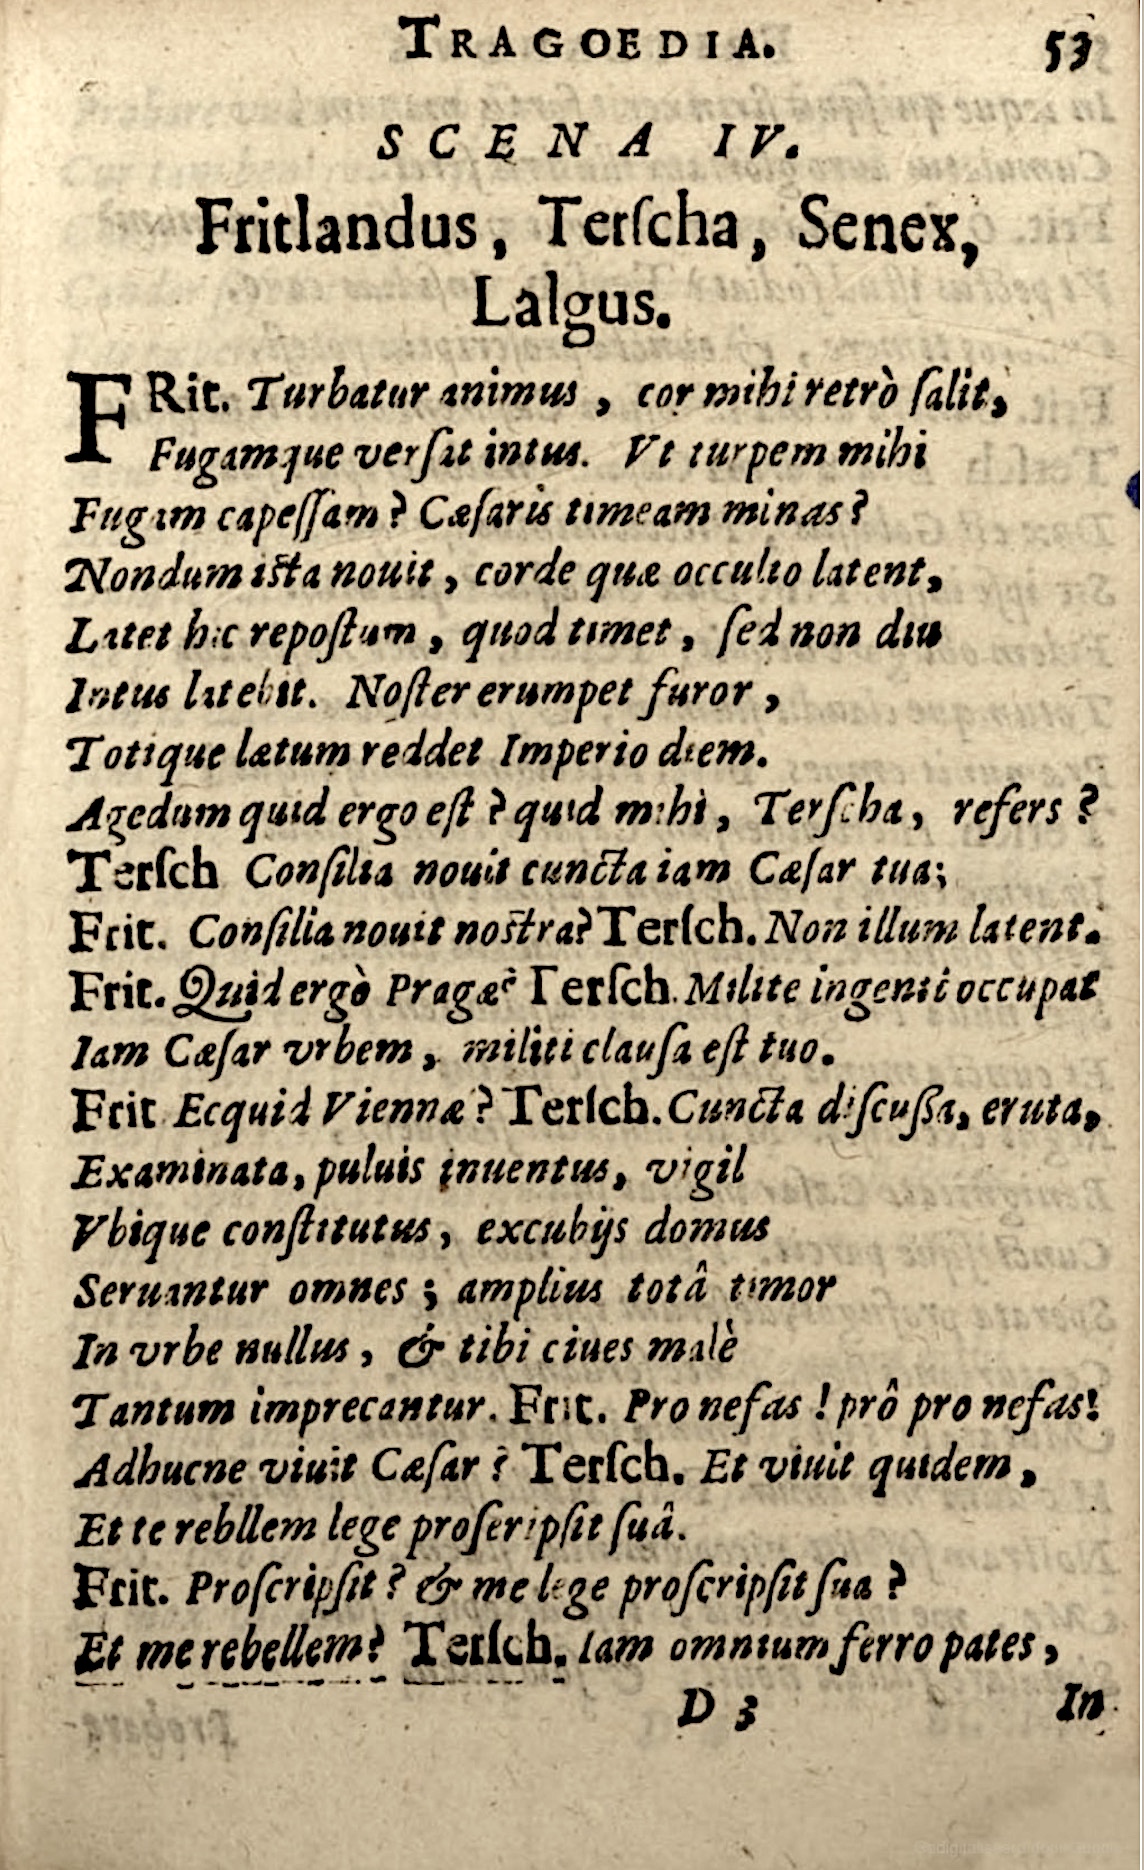 TRAGOEDIA. 53
SCENA IV.
Fritlandus, Terſcha, Senex,
Lalgus.
FRit. Turbatur animus, cor mihi retrò ſalit,
Fugamque verſat intus. Vt turpem mihi
Fugam capeſſam? Cæſaris timeam minas?
Nondum iſta nouit, corde quæ occulto latent,
Latet hic repoſtum, quod timet, ſed non diu
Intus latebit. Noſter erumpet furor,
Totique lætum reddet Imperio diem.
Agedum quid ergo eſt? quid mihi, Terſcha, refers?
Terſch Conſilia nouit cuncta iam Cæſar tua;
Frit. Conſilia nouit noſtra? Terſch. Non illum latent.
Frit. Quid ergò Pragæ? Terſch. Milite ingenti occupat
Iam Cæſar vrbem, militi clauſa eſt tuo.
Frit Ecquid Viennæ? Terſch. Cuncta diſcuſſa, eruta,
Examinata, puluis inuentus, vigil
Vbique conſtitutus, excubijs domus
Seruantur omnes; amplius totâ timor
In vrbe nullus, & tibi ciues malè
Tantum imprecantur. Frit. Pro nefas! prô pro nefas!
Adhucne viuit Cæſar? Terſch. Et viuit quidem,
Et te rebllem lege proſeripſit ſuâ.
Frit. Proſcripſit? & me lege proſcripſit ſua?
Et me rebellem? Terſch. Iam omnium ferro pates,
D 3 In